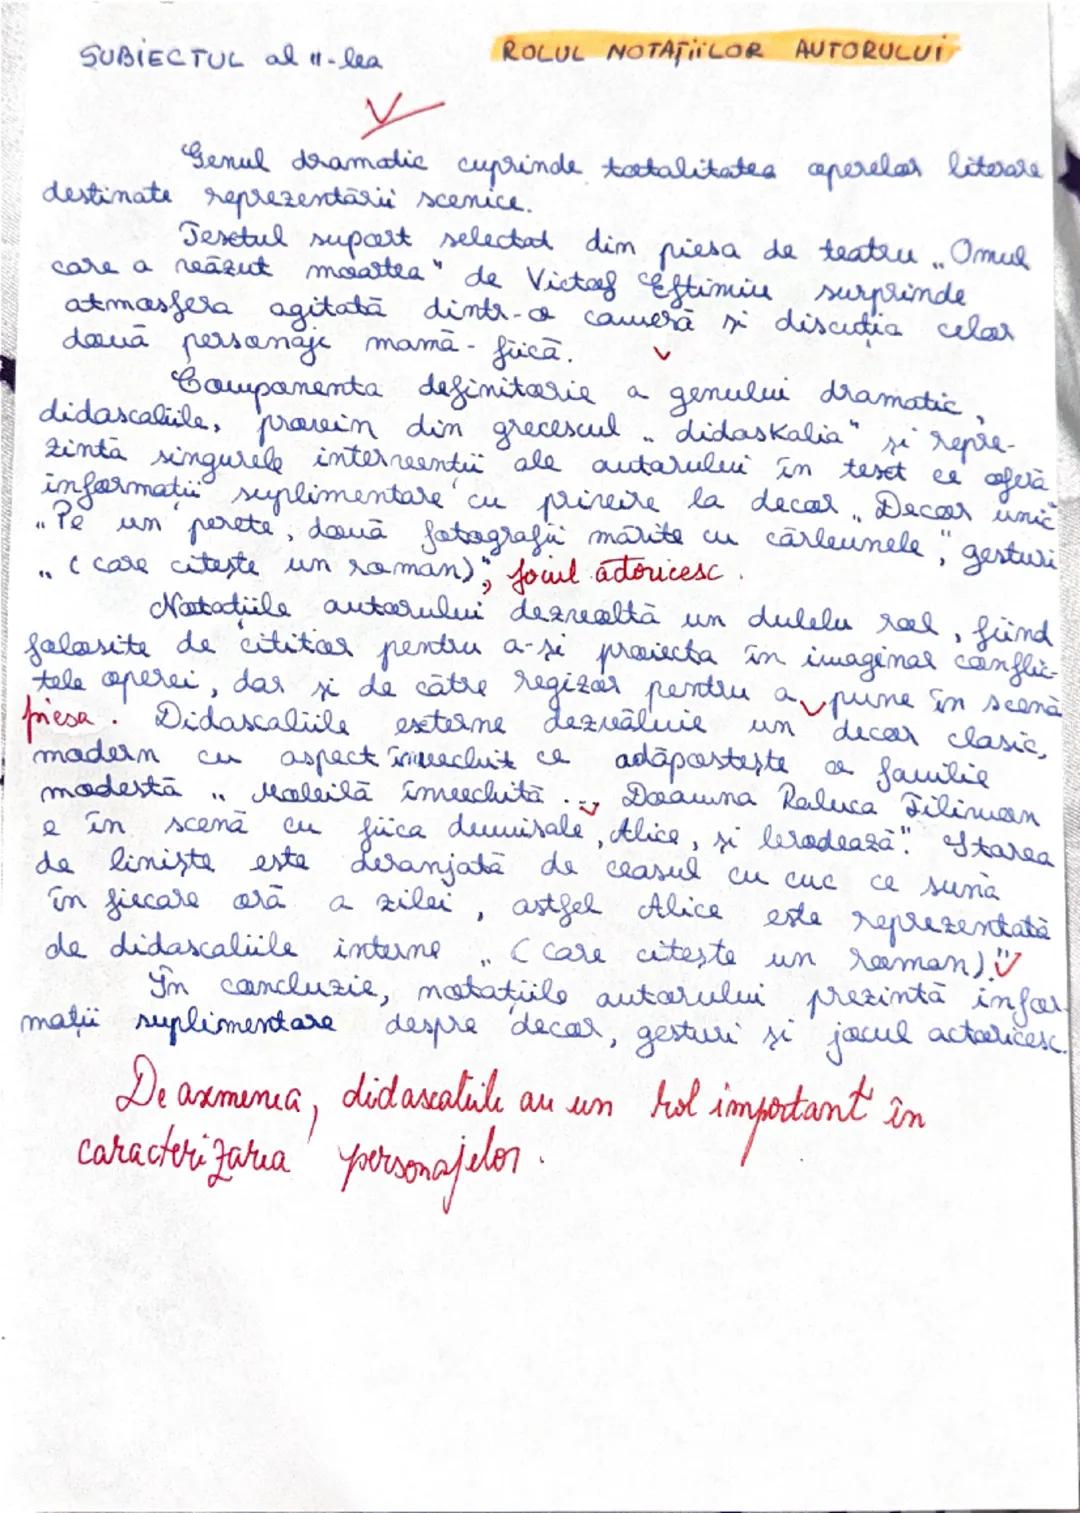 SUBIECTUL al II-lea
ROLUL NOTAȚIILOR AUTORULUI
Genul dramatic cuprinde totalitatea operelor literare
destinate reprezentării scenice.
Textul suport selectat din piesa de teatru „Omul
care a văzut moartea" de Victor Eftimiu surprinde
atmosfera agitată dintr-o cameră și discuția celor
două personaje mamă-fiică.
Componenta definitorie a genului dramatic,
didascaliile, provin din grecescul „didaskalia" și repre-
zintă singurele intervenții ale autorului în text ce oferă
informații suplimentare cu privire la decor „Decor unic
„Pe un perete, două fotografii mărite cu cărbunele", gesturi
„(care citește un roman)"; jocul actoricesc.
Notațiile autorului dezvoltă un dublu rol, fiind
folosite de cititor pentru a-și proiecta în imaginar conflic-
tele operei, dar și de către regizor pentru a pune în scenă
piesa. Didascaliile externe dezvăluie un decor clasic,
modern cu aspect învechit ce adăpostește o familie
modestă „Mobilă învechită... Doamna Raluca Filimon
e în scenă cu fiica dumisale, Alice, și brodează". Starea
de liniște este deranjată de ceasul cu cuc ce sună
în fiecare oră a zilei, astfel Alice este reprezentată
de didascaliile interne „(care citește un roman)"
În concluzie, notațiile autorului prezintă infor-
mații suplimentare despre decor, gesturi și jocul actoricesc.
De asemenea, didascaliile au un rol important în
caracterizarea personajelor.